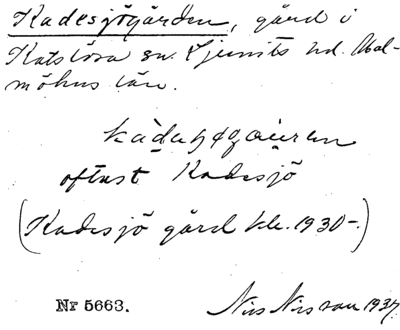 Kadesjögården, gård i
Katslösa sn. Ljunits hd. Mal-
möhus län.
oftast Kadesjö
(Kadesjö gård bl. 1930-.)
Nr 5663. Nils Nilsson 1937.